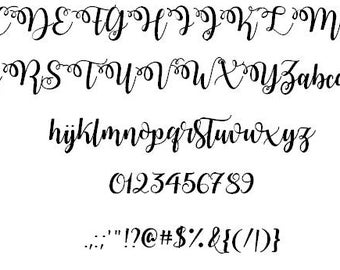 C D E F G H I J K L M
R S T U V W X Y Z a b c
hijklmnopqrstuvwxyz
0123456789
.,:;'"!?@#$%&{(/|)}